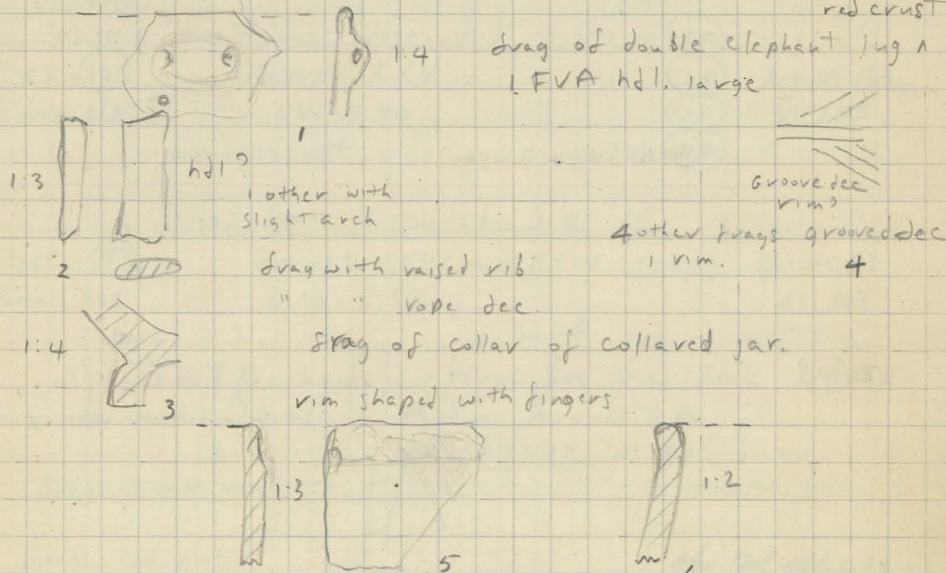 red crust
1:4 frag of double elephant lug ʌ
1 EVA hdl. large
1
1:3 hdl?
1 other with
slight arch
Groove dec
rim?
4 other frags grooved dec
1 rim.
4
2 frag with raised rib
" " rope dec.
1:4 frag of collar of collared jar.
3
rim shaped with fingers
1:3
1:2
5